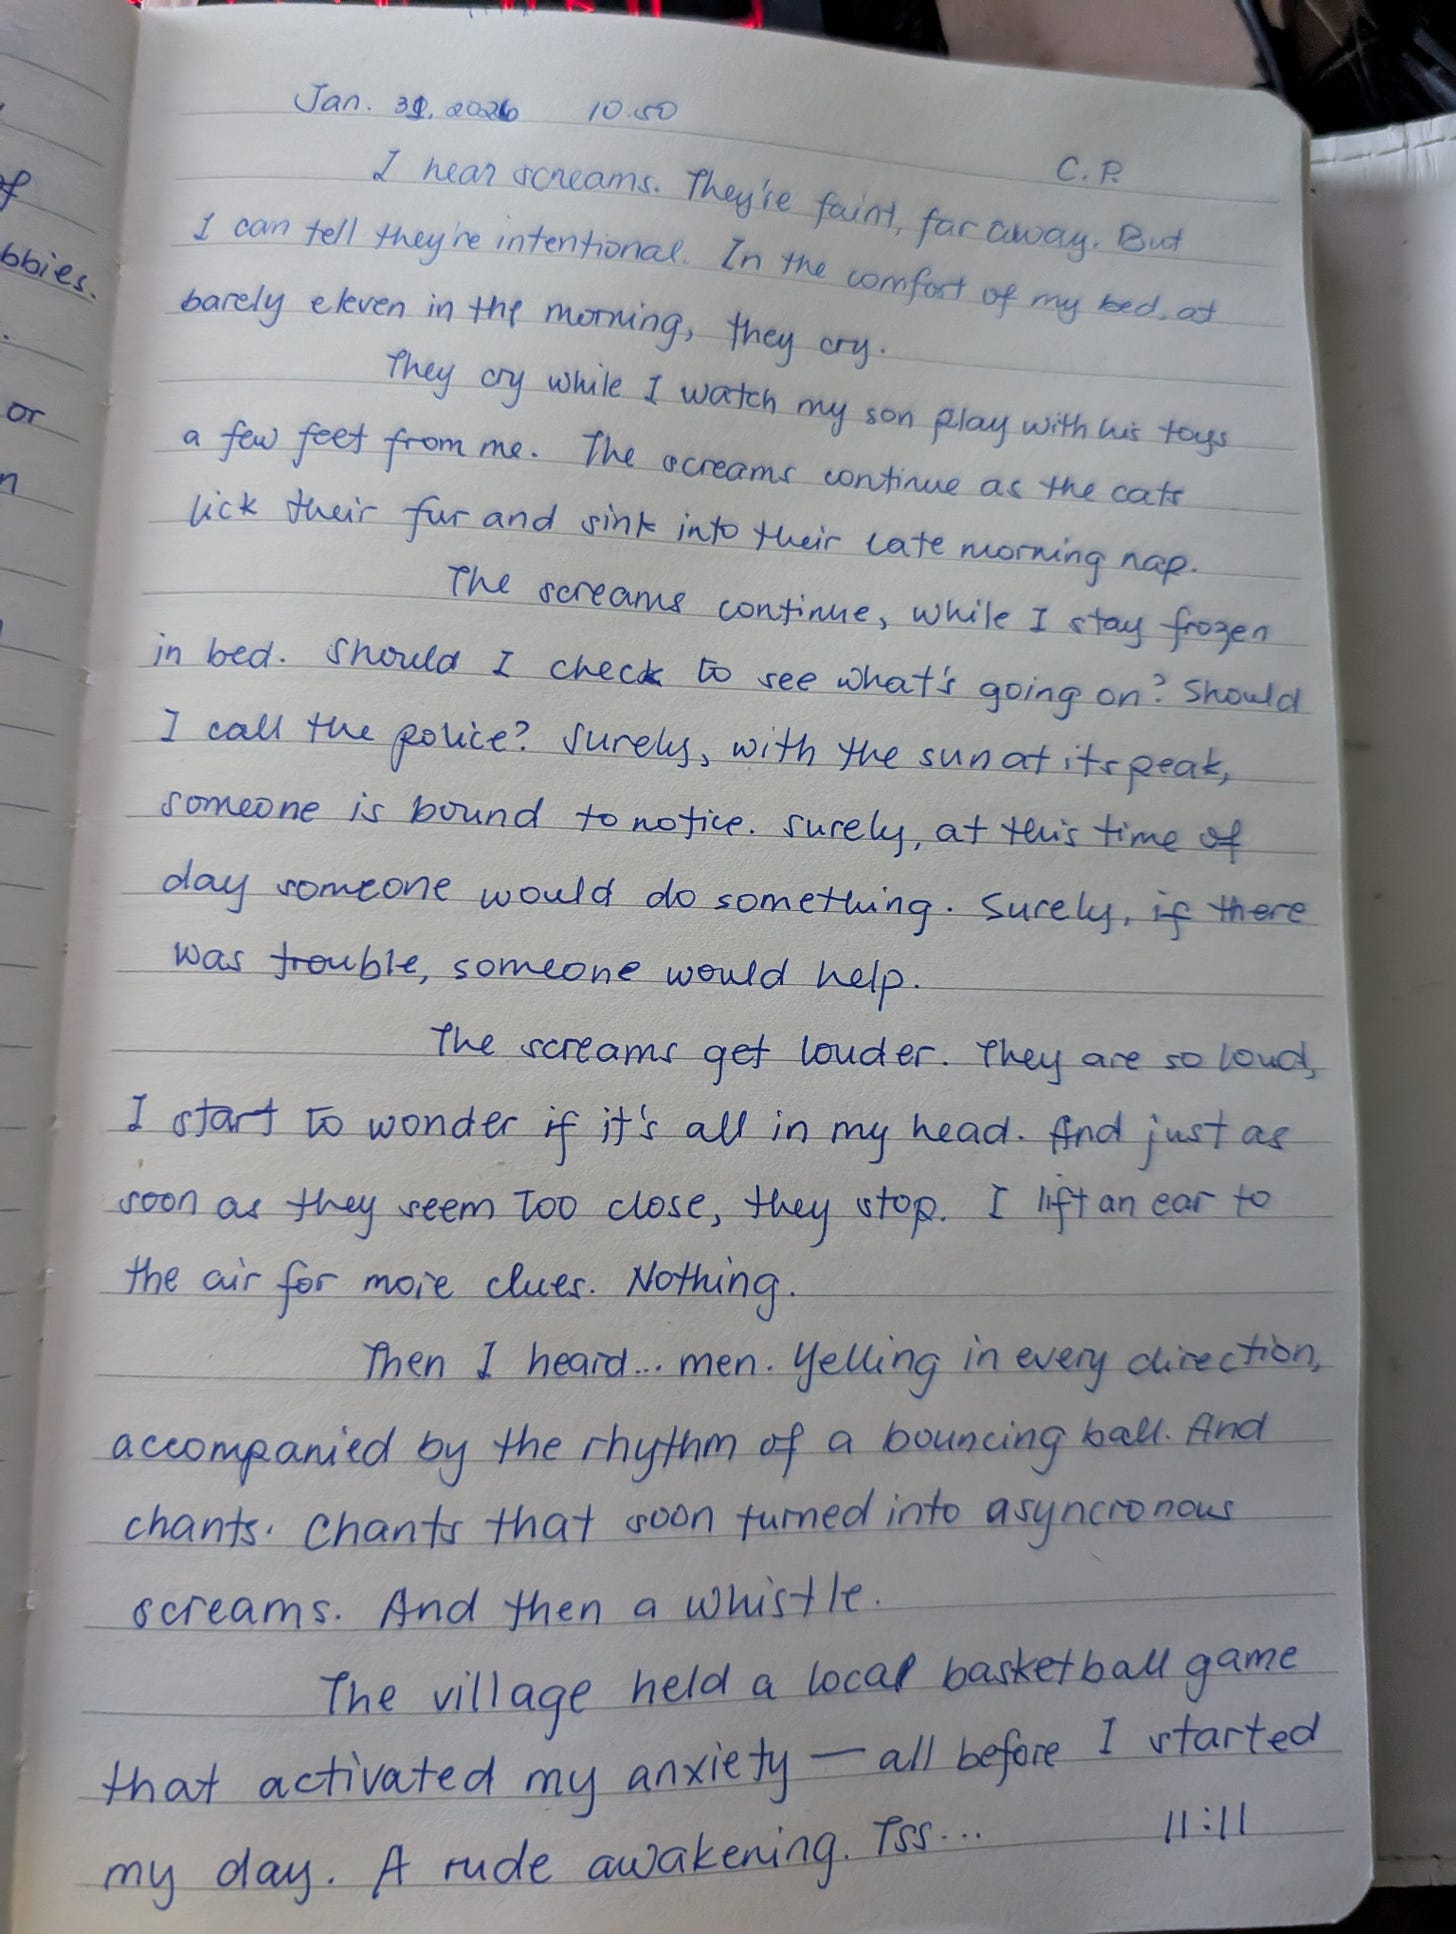 of
bbies.
or
n
Jan. 31, 2026 10.50
C.P.
I hear screams. They're faint, far away. But
I can tell they're intentional. In the comfort of my bed, at
barely eleven in the morning, they cry.
They cry while I watch my son play with his toys
a few feet from me. The screams continue as the cats
lick their fur and sink into their late morning nap.
The screams continue, while I stay frozen
in bed. Should I check to see what's going on? Should
I call the police? Surely, with the sun at its peak,
someone is bound to notice. Surely, at this time of
day someone would do something. Surely, if there
was trouble, someone would help.
The screams get louder. They are so loud,
I start to wonder if it's all in my head. And just as
soon as they seem too close, they stop. I lift an ear to
the air for more clues. Nothing.
Then I heard... men. Yelling in every direction,
accompanied by the rhythm of a bouncing ball. And
chants. Chants that soon turned into asyncronous
screams. And then a whistle.
The village held a local basketball game
that activated my anxiety — all before I started
my day. A rude awakening. Tss... 11:11